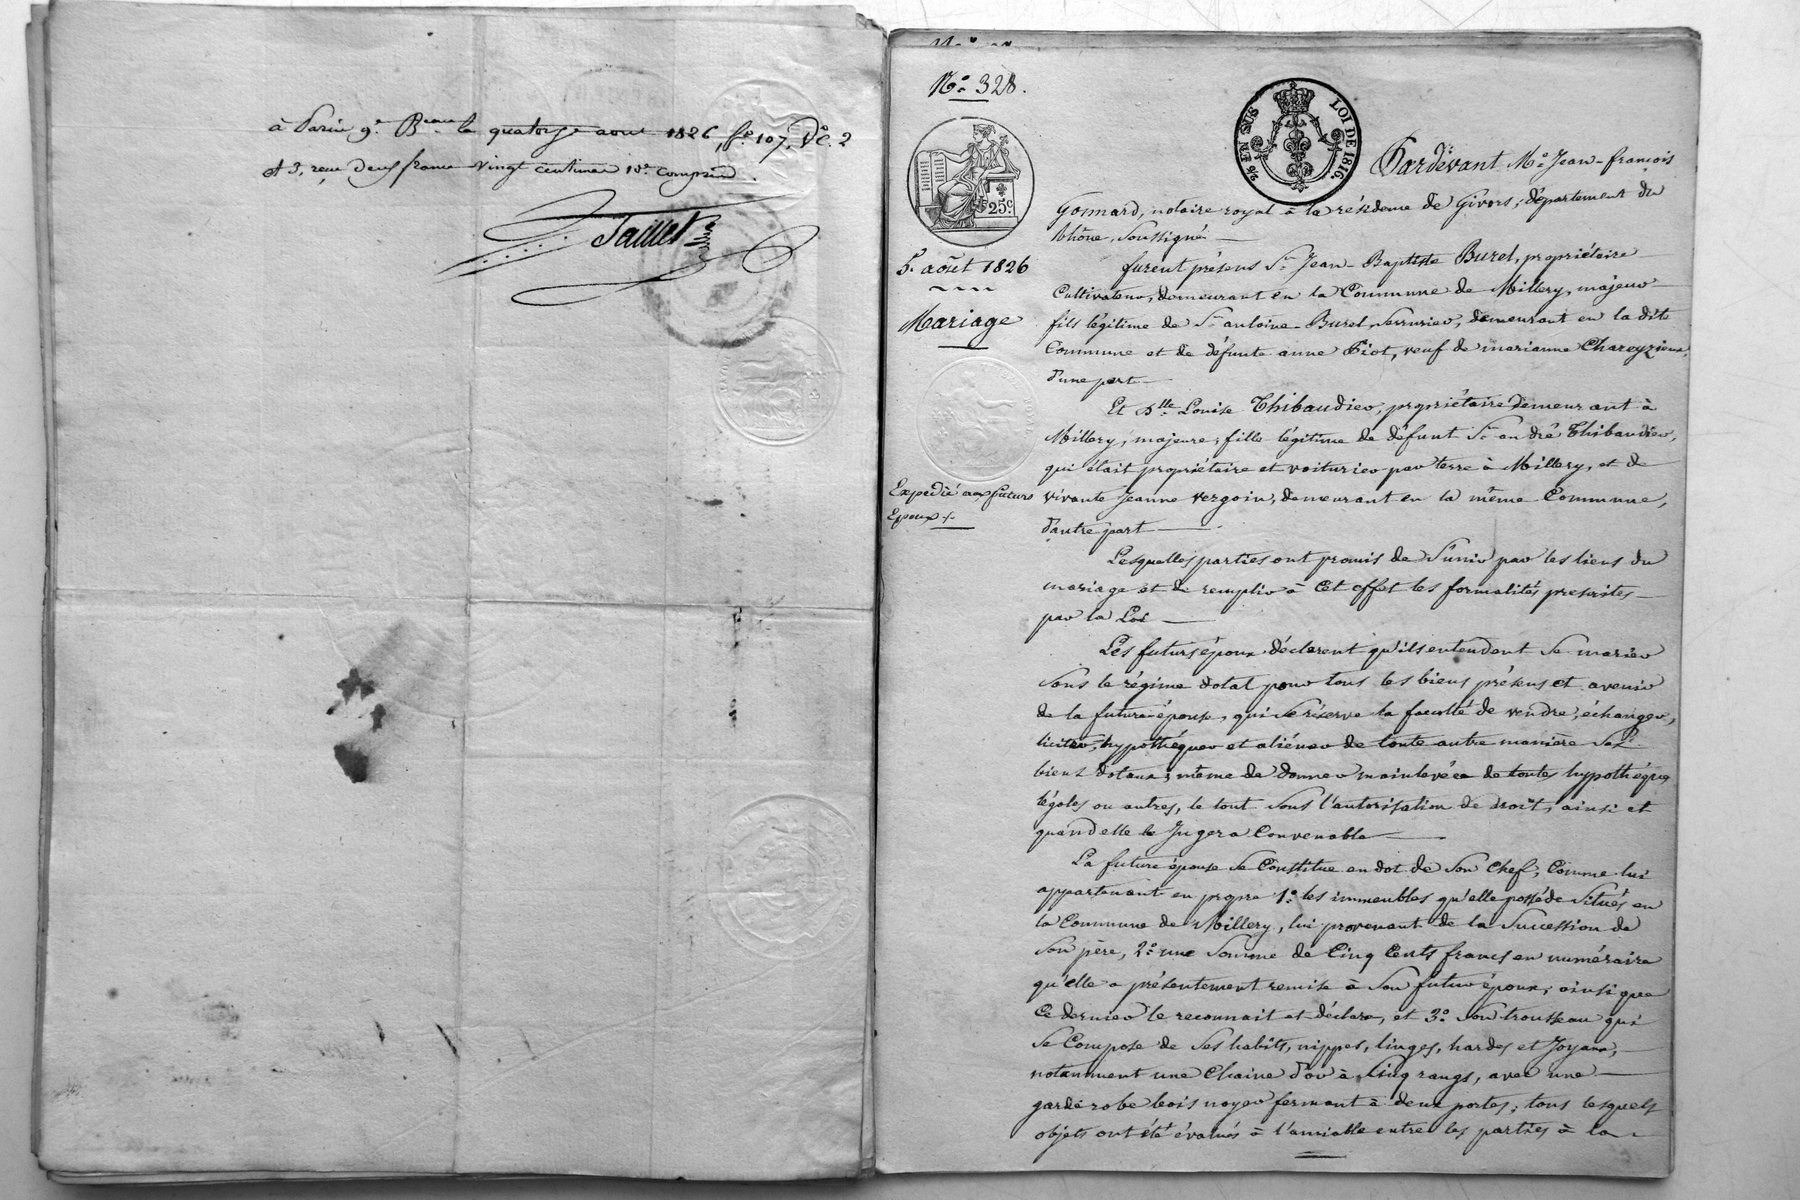 à Paris 9e. Beau. le quatorze aout 1826, fo. 107, Vo. C. 2
et 3, reçu deux francs vingt centimes 10e. compris.
Taillet
No. 328.
25c.
5. août 1826
Mariage
Expedié aux futurs
Epoux
EN SUS
LOI DE 1816.
Pardevant Me. Jean-françois
Gosnard, notaire royal à la résidence de Givors, département du
Rhône, soussigné
furent présens Sr. Jean-Baptiste Buret, propriétaire
Cultivateur, demeurant en la Commune de Millery, majeur
fils légitime de Sr. antoine Buret, serrurier, demeurant en la dite
Commune et de défunte anne Fiot, veuf de marianne Chareyziene,
d'une part
Et Dlle. Louise Thibaudier, propriétaire demeurant à
Millery, majeure, fille légitime de défunt Sr. andré Thibaudier,
qui était propriétaire et voiturier par terre à Millery, et de
vivante Jeanne Vergoin, demeurant en la même Commune,
d'autre part
Lesquelles parties ont promis de s'unir par les liens du
mariage et de remplir à Cet effet les formalités prescrites
par la Loi
Les futurs époux déclarent qu'ils entendent se marier
sous le régime dotal pour tous les biens présens et avenir
de la future épouse, qui se réserve la faculté de vendre, échanger,
liciter, hypothéquer et aliéner de toute autre manière ses
biens dotaux; même de donner mainlevée de toutes hypothéques
légales ou autres, le tout sous l'autorisation de droit, ainsi et
quand elle le Jugera Convenable
La future épouse se Constitue en dot de son Chef, Comme lui
appartenant en propre 1o. les immeubles qu'elle posséde situés en
la Commune de Millery, lui provenant de la succession de
son père, 2o. une somme de Cinq Cents francs en numéraire
qu'elle a présentement remise à son futur époux, ainsi que
Ce dernier le reconnait et déclare, et 3o. son trousseau qui
se Compose de ses habits, nippes, linges, hardes et Joyaux,
notamment une Chaine d'or à Cinq rangs, avec une
garderobe bois noyer fermant à deux portes; tous lesquels
objets ont été évalués à l'amiable entre les parties à la